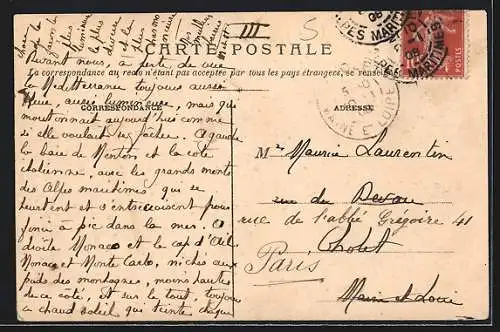 III
CARTE POSTALE
La correspondance au recto n'étant pas acceptée par tous les pays étrangers, se renseigner
CORRESPONDANCE
ADRESSE
Devant nous, à perte de vue
la Méditerranée toujours aussi
bleue, aussi lumineuse, mais qui
moutonnait aujourd'hui comme si
elle voulait se fâcher. A gauche
la baie de Menton et la côte
italienne, avec les grands monts
des Alpes maritimes qui se
heurtent et s'entrecroisent pour
finir à pic dans la mer. A
droite Monaco et le cap d'Ail
Monaco et Monte Carlo, nichés aux
pieds des montagnes, moins hautes
de ce côté, et sur le tout, toujours
ce chaud soleil qui teinte chaque
chose de la
façon la
plus
lumineuse
la plus
diverse
et la
plus
Mr Maurice Laurentin
rue du Devau
rue de l'abbé Grégoire 41
Cholet
Paris
Maine et Loire
ALPES MARITIMES
MAINE ET LOIRE
POSTES